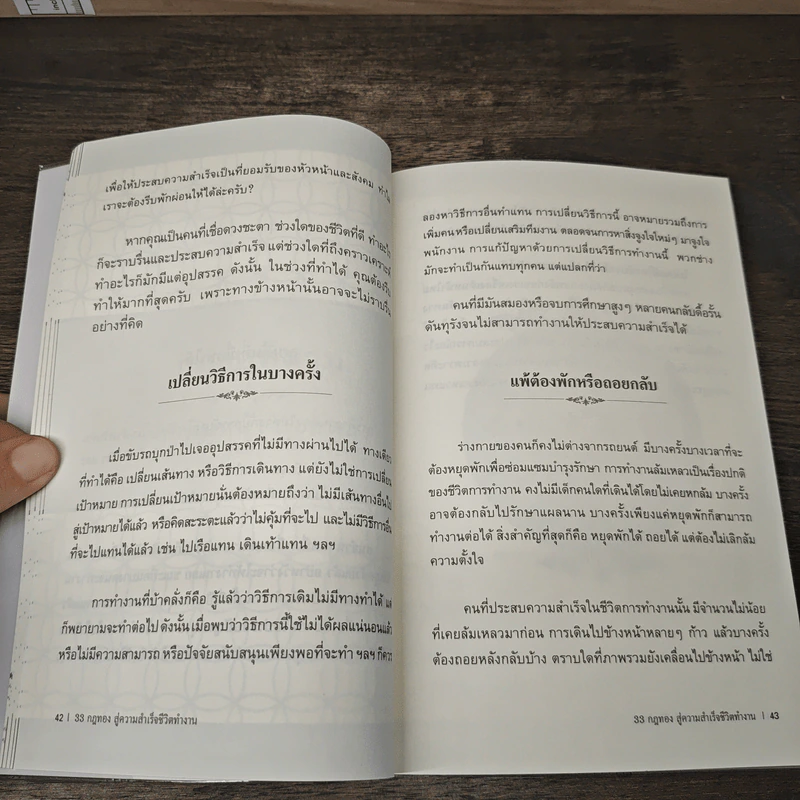 เพื่อให้ประสบความสำเร็จเป็นที่ยอมรับของหัวหน้าและสังคม
เราจะต้องรีบพักผ่อนให้ได้ล่ะครับ?
หากคุณเป็นคนที่เชื่อดวงชะตา ช่วงใดของชีวิตที่ดี ทำอะไร
ก็จะราบรื่นและประสบความสำเร็จ แต่ช่วงใดที่ถึงคราวเคราะห์
ทำอะไรก็มักมีแต่อุปสรรค ดังนั้น ในช่วงที่ทำได้ คุณต้องรีบ
ทำให้มากที่สุดครับ เพราะทางข้างหน้านั้นอาจจะไม่ราบรื่น
อย่างที่คิด
เปลี่ยนวิธีการในบางครั้ง
เมื่อขับรถบุกป่าไปเจออุปสรรคที่ไม่มีทางผ่านไปได้ ทางเดียว
ที่ทำได้คือ เปลี่ยนเส้นทาง หรือวิธีการเดินทาง แต่ยังไม่ใช่การเปลี่ยน
เป้าหมาย การเปลี่ยนเป้าหมายนั่นต้องหมายถึงว่า ไม่มีเส้นทางอื่น
สู่เป้าหมายได้แล้ว หรือคิดสะระตะแล้วว่าไม่คุ้มที่จะไป และไม่มีวิธีการอื่น
ที่จะไปแทนได้แล้ว เช่น ไปเรือแทน เดินเท้าแทน ฯลฯ
การทำงานที่บ้าคลั่งก็คือ รู้แล้วว่าวิธีการเดิมไม่มีทางทำได้ แต่
ก็พยายามจะทำต่อไป ดังนั้น เมื่อพบว่าวิธีการนี้ใช้ไม่ได้ผลแน่นอนแล้ว
หรือไม่มีความสามารถ หรือปัจจัยสนับสนุนเพียงพอที่จะทำ ฯลฯ ก็ควร
42 | 33 กฎทอง สู่ความสำเร็จชีวิตทำงาน
ลองหาวิธีการอื่นทำแทน การเปลี่ยนวิธีการนี้ อาจหมายรวมถึงการ
เพิ่มคน หรือเปลี่ยนเสริมทีมงาน ตลอดจนการหาสิ่งจูงใจใหม่ๆ มาจูงใจ
พนักงาน การแก้ปัญหาด้วยการเปลี่ยนวิธีการทำงานนี้ พวกช่าง
มักจะทำเป็นกันแทบทุกคน แต่แปลกที่ว่า
คนที่มีมันสมองหรือจบการศึกษาสูงๆ หลายคนกลับดื้อรั้น
ดันทุรังจนไม่สามารถทำงานให้ประสบความสำเร็จได้
แพ้ต้องพักหรือถอยกลับ
ร่างกายของคนก็คงไม่ต่างจากรถยนต์ มีบางครั้งบางเวลาที่จะ
ต้องหยุดพักเพื่อซ่อมแซมบำรุงรักษา การทำงานล้มเหลวเป็นเรื่องปกติ
ของชีวิตการทำงาน คงไม่มีเด็กคนใดที่เดินได้โดยไม่เคยหกล้ม บางครั้ง
อาจต้องกลับไปรักษาแผลนาน บางครั้งเพียงแค่หยุดพักก็สามารถ
ทำงานต่อได้ สิ่งสำคัญที่สุดก็คือ หยุดพักได้ ถอยได้ แต่ต้องไม่เลิกล้ม
ความตั้งใจ
คนที่ประสบความสำเร็จในชีวิตการทำงานนั้น มีจำนวนไม่น้อย
ที่เคยล้มเหลวมาก่อน การเดินไปข้างหน้าหลายๆ ก้าว แล้วบางครั้ง
ต้องถอยหลังกลับบ้าง ตราบใดที่ภาพรวมยังเคลื่อนไปข้างหน้า ไม่ใช่
33 กฎทอง สู่ความสำเร็จชีวิตทำงาน | 43